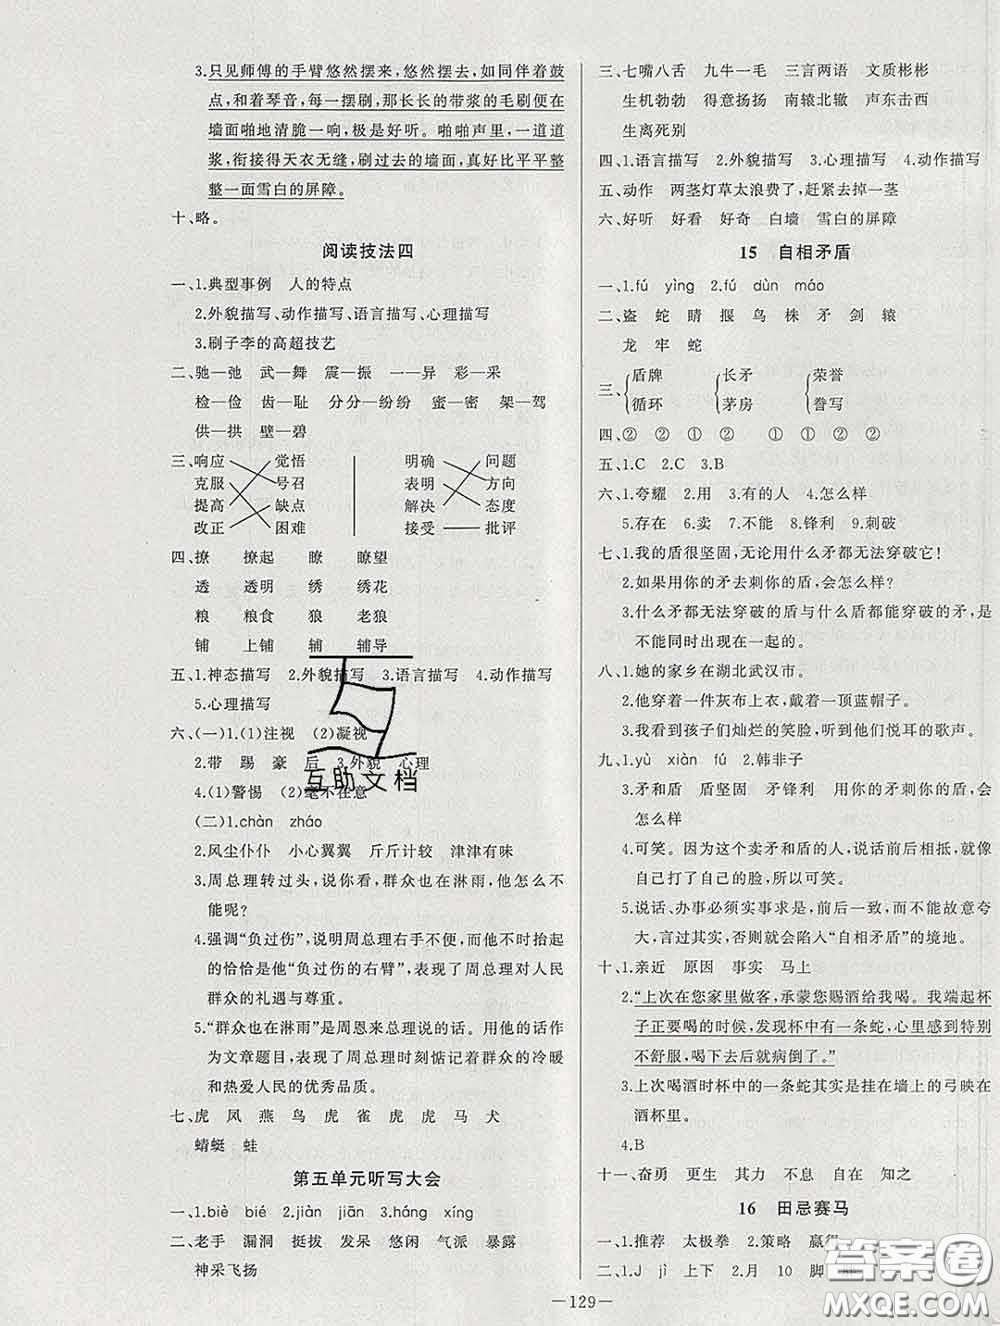 3.只见师傅的手臂悠然摆来,悠然摆去,如同伴着鼓
点,和着琴音,每一摆刷,那长长的带浆的毛刷便在
墙面啪地清脆一响,极是好听。啪啪声里,一道道
浆,衔接得天衣无缝,刷过去的墙面,真好比平平整
整一面雪白的屏障。
十、略。
阅读技法四
一、1.典型事例 人的特点
2.外貌描写、动作描写、语言描写、心理描写
3.刷子李的高超技艺
二、驰—弛 武—舞 震—振 一—异 彩—采
检—俭 齿—耻 分分—纷纷 蜜—密 架—驾
供—拱 壁—碧
三、响应 觉悟 明确 问题
克服 号召 表明 方向
提高 缺点 解决 态度
改正 困难 接受 批评
四、撩 撩起 瞭 瞭望
透 透明 绣 绣花
粮 粮食 狼 老狼
铺 上铺 辅 辅导
五、1.神态描写 2.外貌描写 3.语言描写 4.动作描写
5.心理描写
六、(一)1.(1)注视 (2)凝视
2.带 踢 豪 后 3.外貌 心理
4.(1)警惕 (2)毫不在意
(二)1.chàn zháo
2.风尘仆仆 小心翼翼 斤斤计较 津津有味
3.周总理转过头,说你看,群众也在淋雨,他怎么不
能呢?
4.强调“负过伤”,说明周总理右手不便,而他不时抬起
的恰恰是他“负过伤的右臂”,表现了周总理对人民
群众的礼遇与尊重。
5.“群众也在淋雨”是周恩来总理说的话。用他的话作
为文章题目,表现了周总理时刻惦记着群众的冷暖
和热爱人民的优秀品质。
七、虎 凤 燕 鸟 虎 雀 虎 虎 马 犬
蜻蜓 蛙
第五单元听写大会
一、1.biè bié 2.jiàn jiān 3.háng xíng
二、老手 漏洞 挺拔 发呆 悠闲 气派 暴露
神采飞扬
三、七嘴八舌 九牛一毛 三言两语 文质彬彬
生机勃勃 得意扬扬 南辕北辙 声东击西
生离死别
四、1.语言描写 2.外貌描写 3.心理描写 4.动作描写
五、动作 两茎灯草太浪费了,赶紧去掉一茎
六、好听 好看 好奇 白墙 雪白的屏障
15 自相矛盾
一、1.fú yìng 2.fú dùn máo
二、盗 蛇 睛 揠 鸟 株 矛 剑 辕
龙 牢 蛇
三、盾牌 长矛 荣誉
循环 茅房 誊写
四、② ② ① ② ① ① ② ②
五、1.C 2.C 3.B
六、1.夸耀 2.用 3.有的人 4.怎么样
5.存在 6.卖 7.不能 8.锋利 9.刺破
七、1.我的盾很坚固,无论用什么矛都无法穿破它!
2.如果用你的矛去刺你的盾,会怎么样?
3.什么矛都无法穿破的盾与什么盾都能穿破的矛,是
不能同时出现在一起的。
八、1.她的家乡在湖北武汉市。
2.他穿着一件灰布上衣,戴着一顶蓝帽子。
3.我看到孩子们灿烂的笑脸,听到他们悦耳的歌声。
九、1.yù xiàn fú 2.韩非子
3.矛和盾 盾坚固 矛锋利 用你的矛刺你的盾,会
怎么样
4.可笑。因为这个卖矛和盾的人,说话前后相抵,就像
自己打了自己的脸,所以可笑。
5.说话、办事必须实事求是,前后一致,而不能故意夸
大,言过其实,否则就会陷入“自相矛盾”的境地。
十、1.亲近 原因 事实 马上
2.“上次在您家里做客,承蒙您赐酒给我喝。我端起杯
子正要喝的时候,发现杯中有一条蛇,心里感到特别
不舒服,喝下去后就病倒了。”
3.上次喝酒时杯中的一条蛇其实是挂在墙上的弓映在
酒杯里。
4.B
十一、奋勇 更生 其力 不息 自在 知之
16 田忌赛马
一、1.推荐 太极拳 2.策略 赢得
二、1.J jì 上下 2.月 10 脚
—129—
互助文档
答案圈
MXQE.COM